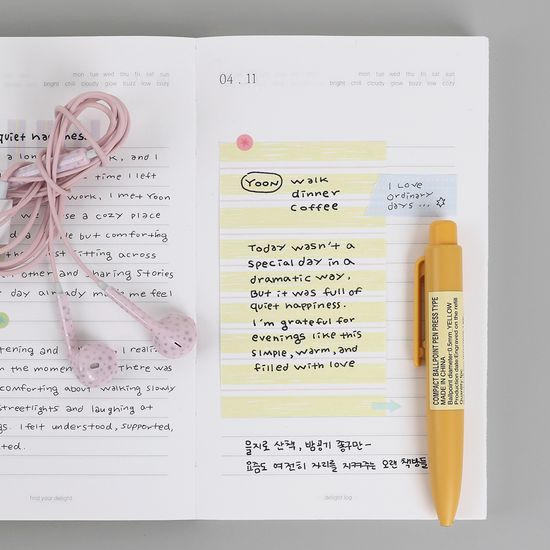 mon tue wed thu fri sat sun
bright chill cloudy glow buzz low cozy
quiet happiness
k, and I
time I left
work, I met Yoon
a cozy place
but comforting
sitting across
other and sharing stories
day already made me feel
listening and
I realiz
in the moment
There was
comforting about walking slowly
streetlights and laughing at
gs. I felt understood, supported,
find your delight.
04. 11
mon tue wed thu fri sat sun
bright chill cloudy glow buzz low cozy
YOON walk
dinner
coffee
I LOVE
ordinary
days ...
Today wasn't a
special day in a
dramatic way.
But it was full of
quiet happiness.
I'm grateful for
evenings like this
simple, warm, and
filled with love
을지로 산책, 밤공기 좋구만~
요즘도 여전히 자리를 지켜주는 오랜 책방들
delight log
COMPACT BALLPOINT PEN PRESS TYPE
MADE IN CHINA
Ballpoint diameter:0.5mm, YELLOW
Production date:Engraved on the refill